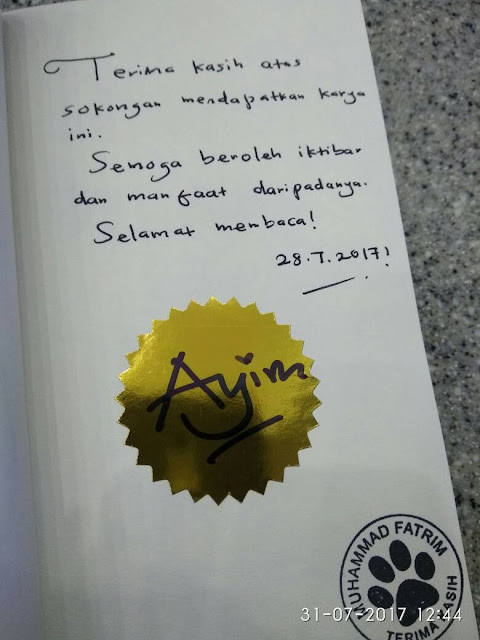 Terima kasih atas
sokongan mendapatkan karya
ini.
Semoga beroleh iktibar
dan manfaat daripadanya.
Selamat membaca!
28.7.2017!
Ayim
MUHAMMAD FATRIM
TERIMA KASIH
31-07-2017 12:44